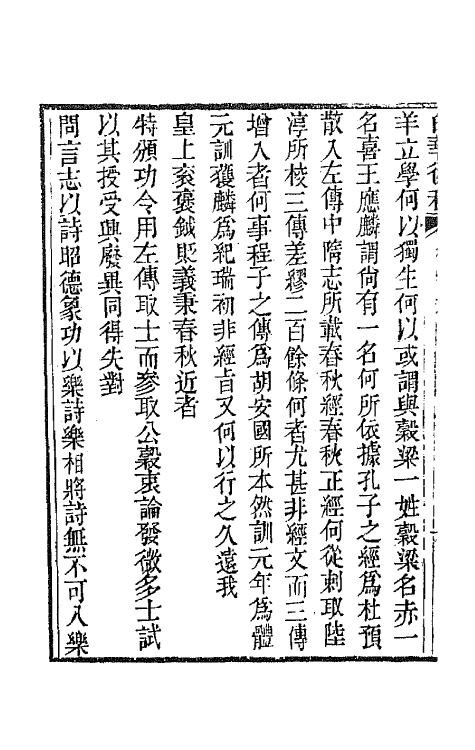 羊立學何以獨生何以或謂與穀梁一姓穀梁名赤一
名喜王應麟謂尙有一名何所依據孔子之經爲杜預
散入左傳中隋志所載春秋經春秋正經何從刺取陸
淳所校三傳差繆二百餘條何者尤甚非經文而三傳
增入者何事程子之傳爲胡安國所本然訓元年爲體
元訓獲麟爲紀瑞初非經㫖又何以行之久遠我
皇上袞褒鉞貶義秉春秋近者
特頒功令用左傳取士而參取公穀衷論發微多士試
以其授受興廢異同得失對
問言志以詩昭德象功以樂詩樂相將詩無不可入樂